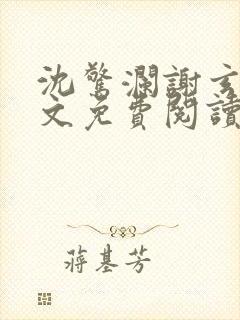 沈驚瀾謝玄
文免費閱讀
蔣基芳